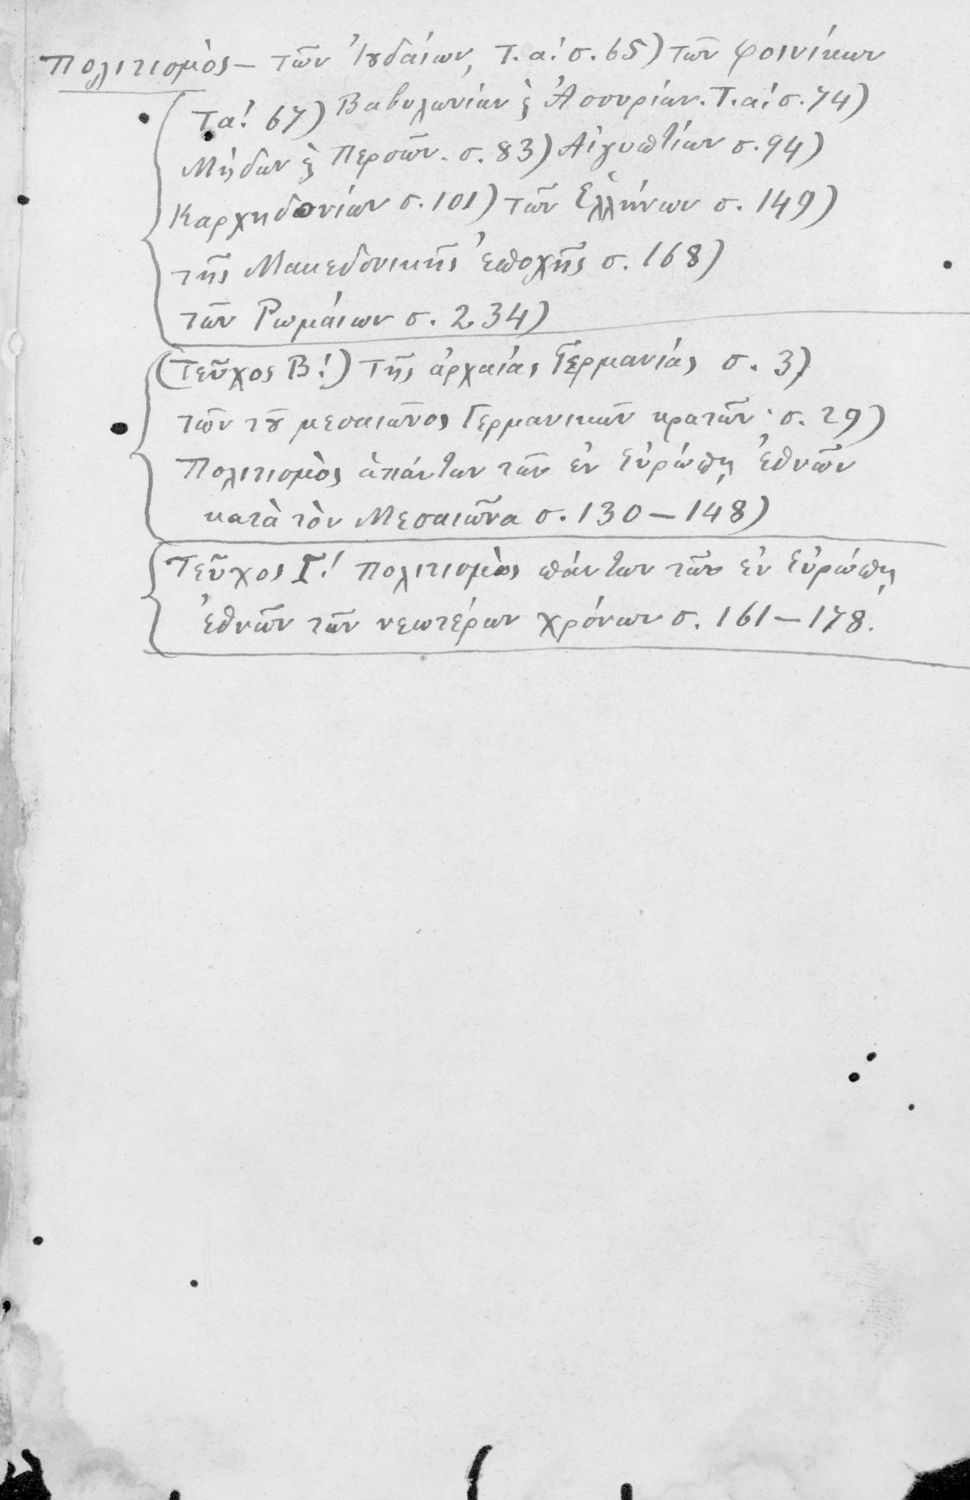 Πολιτισμὸς — τῶν Ἰȣδαίων, Τ. α! σ. 65) τῶν Φοινίκων
Τα! 67) Βαβυλωνίων ϗ Ἀσσυρίων. Τ. α! σ. 74)
Μήδων ϗ Περσῶν. σ. 83) Αἰγυπτίων σ. 94)
Καρχηδονίων σ. 101) τῶν Ἑλλήνων σ. 149)
τῆς Μακεδονικῆς ἐποχῆς σ. 168)
τῶν Ρωμαίων σ. 234)
(Τεῦχος Β!) Τῆς ἀρχαίας Γερμανίας σ. 3)
τῶν τȣ͂ μεσαιῶνος Γερμανικῶν κρατῶν σ. 29)
Πολιτισμὸς ἁπάντων τῶν ἐν Εὐρώπῃ ἐθνῶν
κατὰ τὸν Μεσαιῶνα σ. 130 — 148)
Τεῦχος Γ! πολιτισμὸς πάντων τῶν ἐν Εὐρώπῃ
ἐθνῶν τῶν νεωτέρων χρόνων σ. 161 — 178.